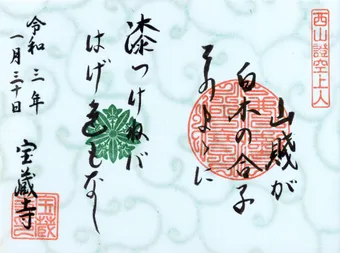 西山證空上人
山賤が
白木の合子
そのまゝに
漆つけねば
はげ色もなし
令和三年
一月三十日
宝蔵寺